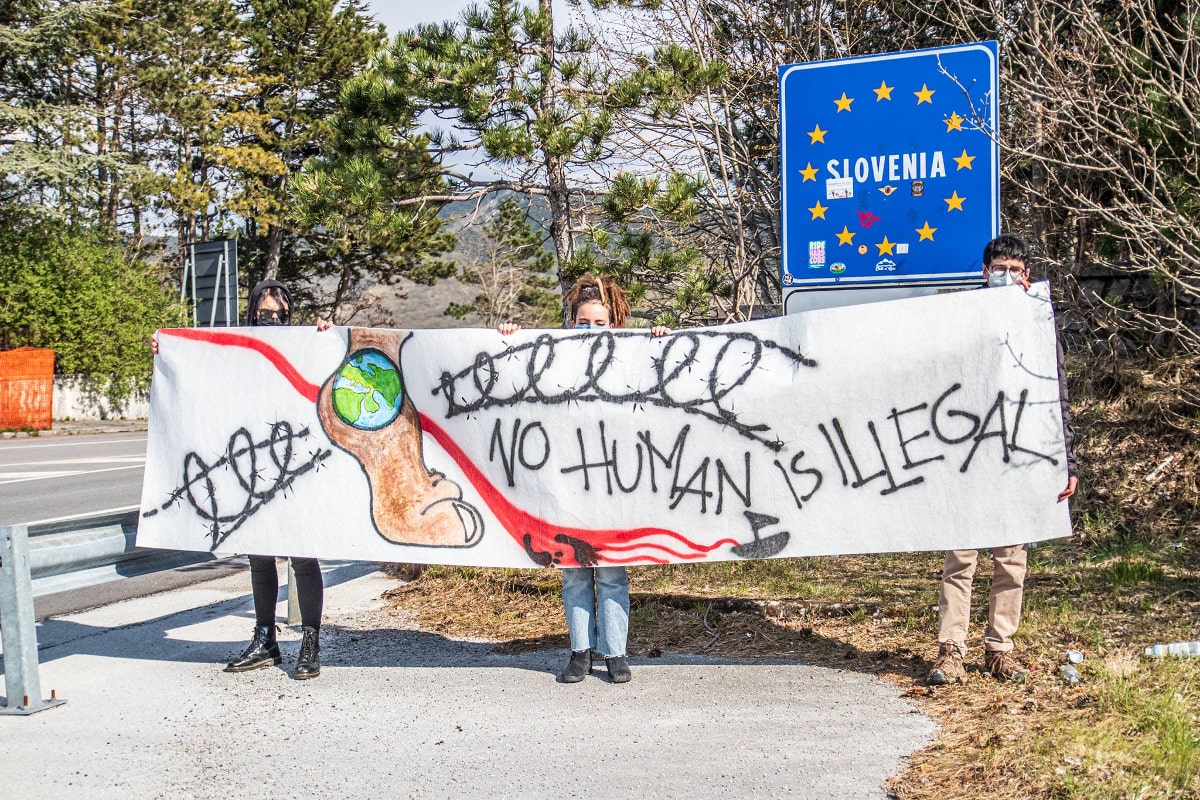 SLOVENIA
NO HUMAN IS ILLEGAL